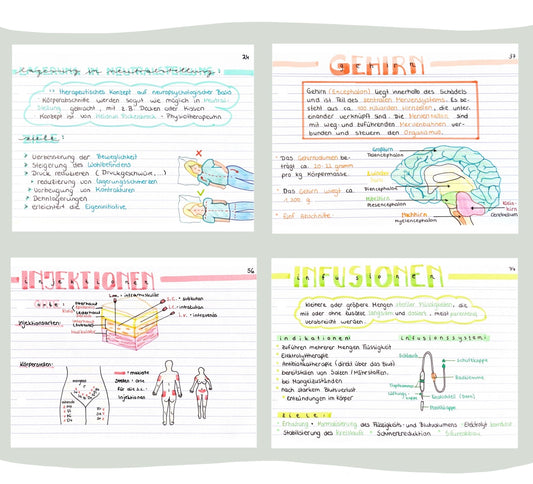 24
Lagerung in Neutralstellung:
Therapeutisches Konzept auf neuropsychologischer Basis
Körperabschnitte werden sogut wie möglich in Neutral-
stellung gebracht, mit z.B. Decken oder Kissen
Konzept ist von Heidrun Pickenbrock - Physiotherapeutin
Ziele:
Verbesserung der Beweglichkeit
Steigerung des Wohlbefindens
Druck reduzieren (Druckgeschwüre,...)
reduzierung von Lagerungsschmerzen
Vorbeugung von Kontrakturen
Dehnlagerungen
erleichtert die Eigeninitiative
37
GEHIRN
gehirn
Gehirn (Encephalon) liegt innerhalb des Schädels
und ist Teil des zentralen Nervensystems. Es be-
steht aus ca. 100 Milliarden Nervenzellen, die unter
einander verknüpft sind. Die Nervenzellen sind
mit weg- und zuführenden Nervenbahnen ver-
bunden und steuern den Organismus.
Das Gehirnvolumen be-
trägt ca. 20-22 gramm
pro kg. Körpermasse
Das Gehirn wiegt ca.
1.300 g
fünf Abschnitte:
Großhirn
Telencephalon
Zwischen-
hirn
Diencephalon
Mittelhirn
Mesencephalon
Nachhirn
myelencephalon
Klein-
hirn
Cerebellum
36
INJEKTIONEN
injektionen
Injektionsarten:
i.m. = intramuskulär
s.c. = subkutan
i.c. = intrakutan
i.v. = intravenös
Körperstellen:
markierte
Stellen = Orte
für die s.c.
Injektionen
INFUSIONEN
infusionen
kleinere oder größere Mengen steriler Flüssigkeiten, die
mit oder ohne Zusätze, langsam und dosiert, meist parenteral
verabreicht werden.
Indikationen:
zuführen mehrerer Mengen Flüssigkeit
Elektrolyttherapie
Antibiotikatherapie (direkt über das Blut)
bereitstellen von Salzen / Nährstoffen,
bei Mangelzuständen
Nach starkem Blutverlust
Entzündungen im Körper
Infusionssystem:
Schlauch
Schutzkappe
Rollklemme
Tropfkammer
Lüftungs-
Einstichteil (Dorn)
Ziele:
Erhaltung + Normalisierung des Flüssigkeits- und Blutvolumens
Stabilisierung des Kreislaufs
Schmerzreduktion